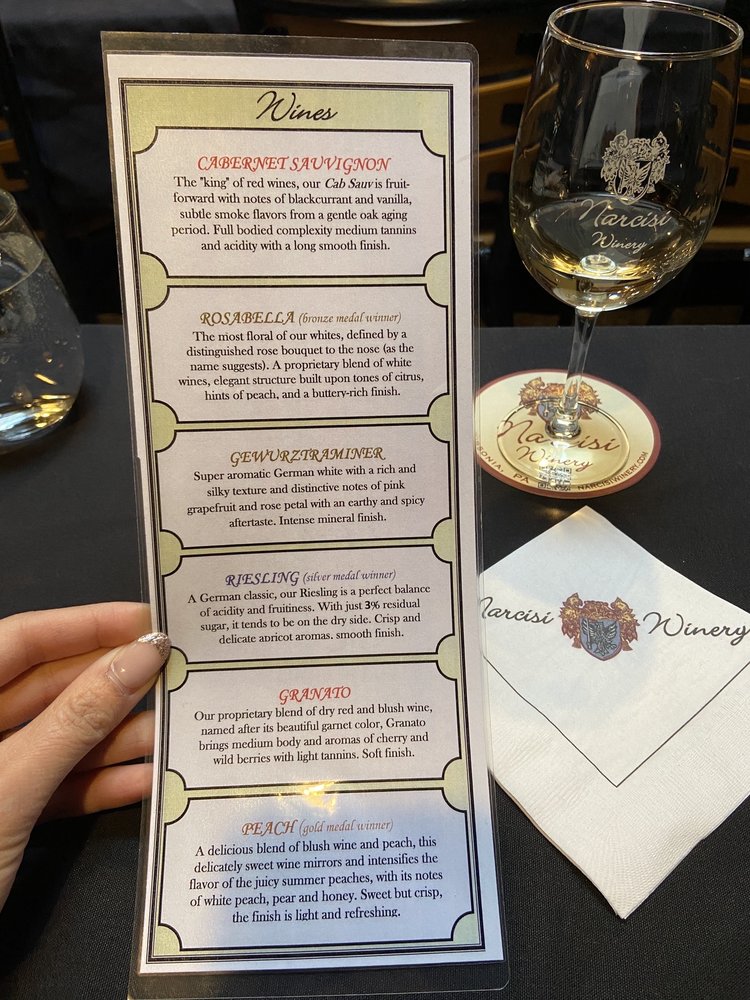 Wines
CABERNET SAUVIGNON
The "king" of red wines, our Cab Sauv is fruit-
forward with notes of blackcurrant and vanilla,
subtle smoke flavors from a gentle oak aging
period. Full bodied complexity medium tannins
and acidity with a long smooth finish.
ROSABELLA (bronze medal winner)
The most floral of our whites, defined by a
distinguished rose bouquet to the nose (as the
name suggests). A proprietary blend of white
wines, elegant structure built upon tones of citrus,
hints of peach, and a buttery-rich finish.
GEWURZTRAMINER
Super aromatic German white with a rich and
silky texture and distinctive notes of pink
grapefruit and rose petal with an earthy and spicy
aftertaste. Intense mineral finish.
RIESLING (silver medal winner)
A German classic, our Riesling is a perfect balance
of acidity and fruitiness. With just 3% residual
sugar, it tends to be on the dry side. Crisp and
delicate apricot aromas, smooth finish.
GRANATO
Our proprietary blend of dry red and blush wine,
named after its beautiful garnet color, Granato
brings medium body and aromas of cherry and
wild berries with light tannins. Soft finish.
PEACH (gold medal winner)
A delicious blend of blush wine and peach, this
delicately sweet wine mirrors and intensifies the
flavor of the juicy summer peaches, with its notes
of white peach, pear and honey. Sweet but crisp,
the finish is light and refreshing.
Narcisi
Winery
Narcisi
Winery
PA
NARCISIWINERY.COM
Narcisi Winery